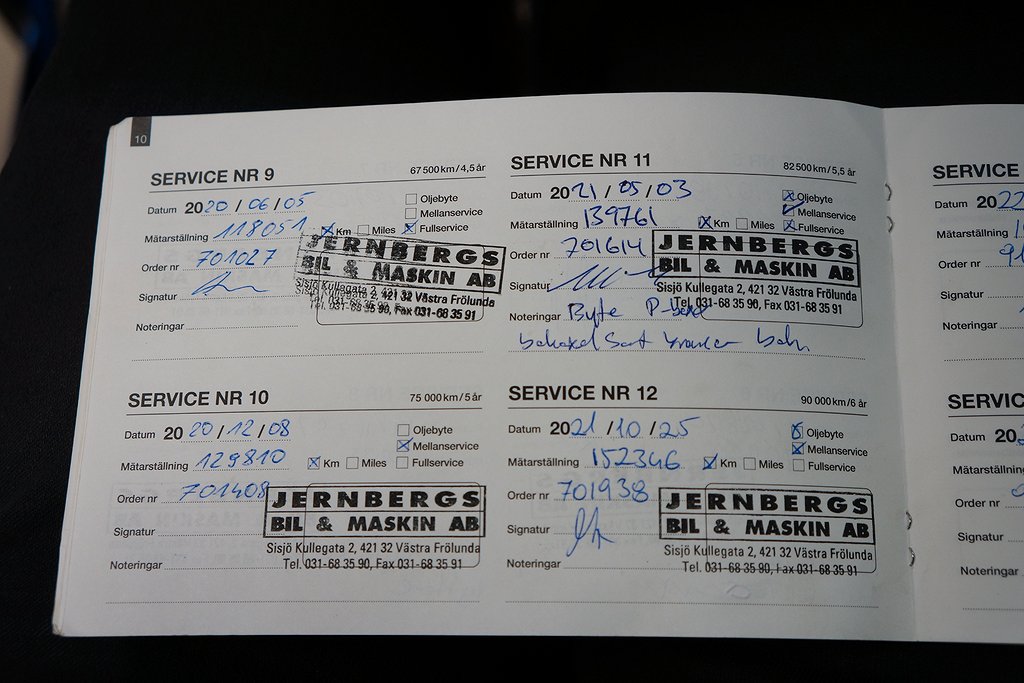 10
SERVICE NR 9 67 500 km/4,5 år
Datum 2020/06/05 Oljebyte
Mellanservice
Mätarställning 118051 Km Miles Fullservice
Order nr 701027
JERNBERGS
BIL & MASKIN AB
Sisjö Kullegata 2, 421 32 Västra Frölunda
Tel. 031-68 35 90, Fax 031-68 35 91
Signatur
Noteringar
SERVICE NR 10 75 000 km/5 år
Datum 2020/12/08 Oljebyte
Mellanservice
Mätarställning 129810 Km Miles Fullservice
Order nr 701408
JERNBERGS
BIL & MASKIN AB
Sisjö Kullegata 2, 421 32 Västra Frölunda
Tel. 031-68 35 90, Fax 031-68 35 91
Signatur
Noteringar
SERVICE NR 11 82 500 km/5,5 år
Datum 2021/05/03 Oljebyte
Mellanservice
Mätarställning 139761 Km Miles Fullservice
Order nr 701614
JERNBERGS
BIL & MASKIN AB
Sisjö Kullegata 2, 421 32 Västra Frölunda
Tel. 031-68 35 90, Fax 031-68 35 91
Signatur
Noteringar Byte
SERVICE NR 12 90 000 km/6 år
Datum 2021/10/25 Oljebyte
Mellanservice
Mätarställning 152346 Km Miles Fullservice
Order nr 701938
JERNBERGS
BIL & MASKIN AB
Sisjö Kullegata 2, 421 32 Västra Frölunda
Tel. 031-68 35 90, Fax 031-68 35 91
Signatur
Noteringar
SERVICE
Datum 2022
Mätarställning
Order nr
Signatur
Noteringar
SERVIC
Datum 20
Mätarställning
Order nr
Signatur
Noteringar